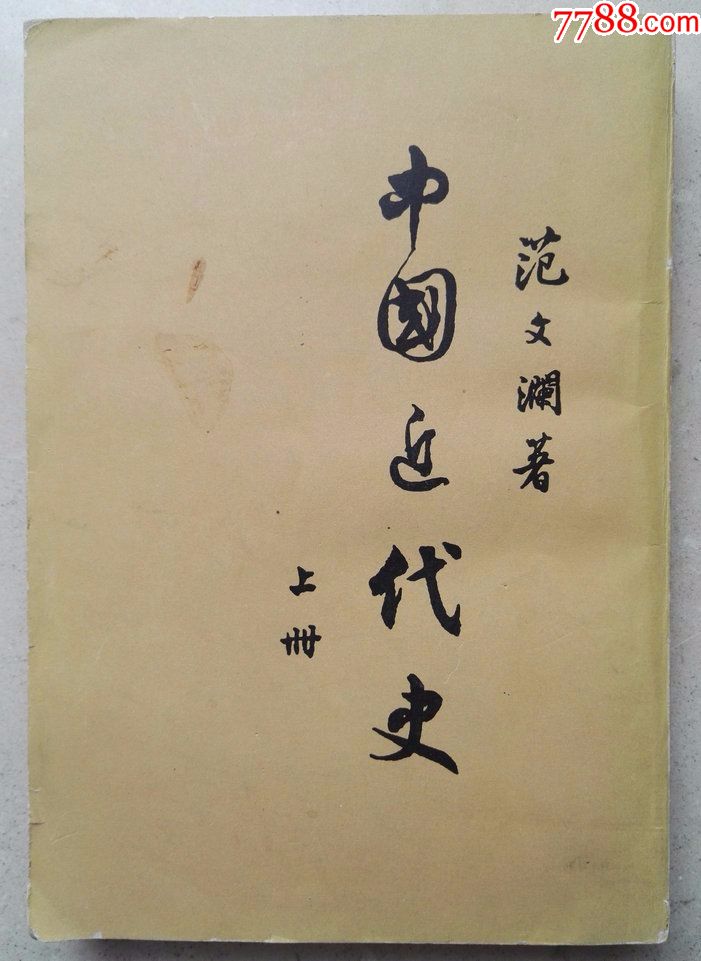 7788.com
范文瀾著
中國近代史
上册